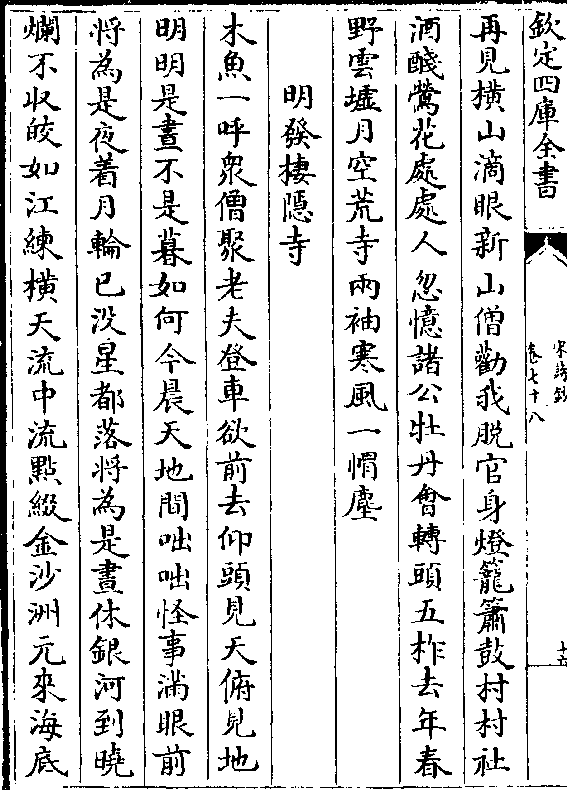 欽定四庫全書
宋詩鈔
卷七十八
十五
再見橫山滴眼新山僧勸我脫官身燈籠簫鼓村村社
酒醆鶯花處處人忽憶諸公牡丹會轉頭五柞去年春
野雲墟月空荒寺兩袖寒風一㡌塵
明發棲隱寺
木魚一呼衆僧聚老夫登車欲前去仰頭見天俯見地
明明是晝不是暮如何今晨天地間咄咄怪事滿眼前
将為是夜着月輪已没星都落将為是晝休銀河到曉
爛不収皎如江練橫天流中流點綴金沙洲元來海底